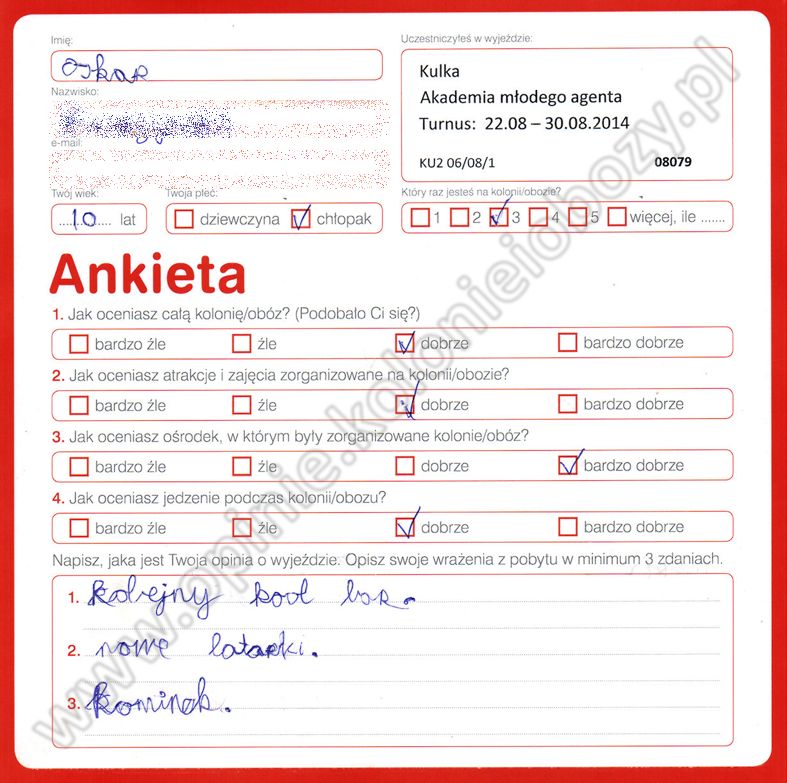 Imię:
Oskar
Nazwisko:
e-mail:
Twój wiek:
....10.... lat
Twoja płeć:
dziewczyna chłopak
Uczestniczyłeś w wyjeździe:
Kulka
Akademia młodego agenta
Turnus: 22.08 – 30.08.2014
KU2 06/08/1 08079
Który raz jesteś na kolonii/obozie?
1 2 3 4 5 więcej, ile .......
Ankieta
1. Jak oceniasz całą kolonię/obóz? (Podobało Ci się?)
bardzo źle źle dobrze bardzo dobrze
2. Jak oceniasz atrakcje i zajęcia zorganizowane na kolonii/obozie?
bardzo źle źle dobrze bardzo dobrze
3. Jak oceniasz ośrodek, w którym były zorganizowane kolonie/obóz?
bardzo źle źle dobrze bardzo dobrze
4. Jak oceniasz jedzenie podczas kolonii/obozu?
bardzo źle źle dobrze bardzo dobrze
Napisz, jaka jest Twoja opinia o wyjeździe. Opisz swoje wrażenia z pobytu w minimum 3 zdaniach.
1. kolejny kod
2. nowe latarki.
3. kominek.
www.opinie.kolonieiobozy.pl